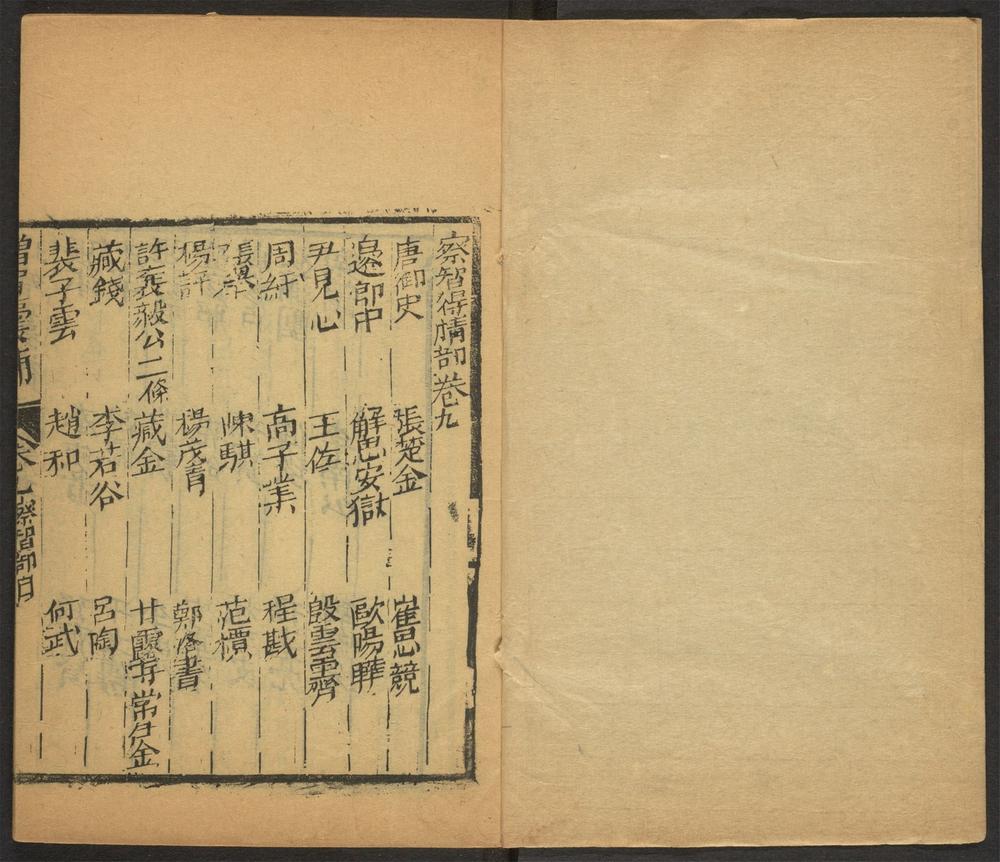 察智得情部卷九
唐御史 張楚金 崔思競
邉郎中 解思安獄 歐陽曄
尹見心 王佐 殷雲霽
周紆 高子業 程戡
張昇 陳騏 范檟
楊評 楊茂清 鄭洛書
許襄毅公二條 藏金 甘露寺常住金
藏錢 李若谷 呂陶
裴子雲 趙和 何武
增智囊補 卷九 察智部目